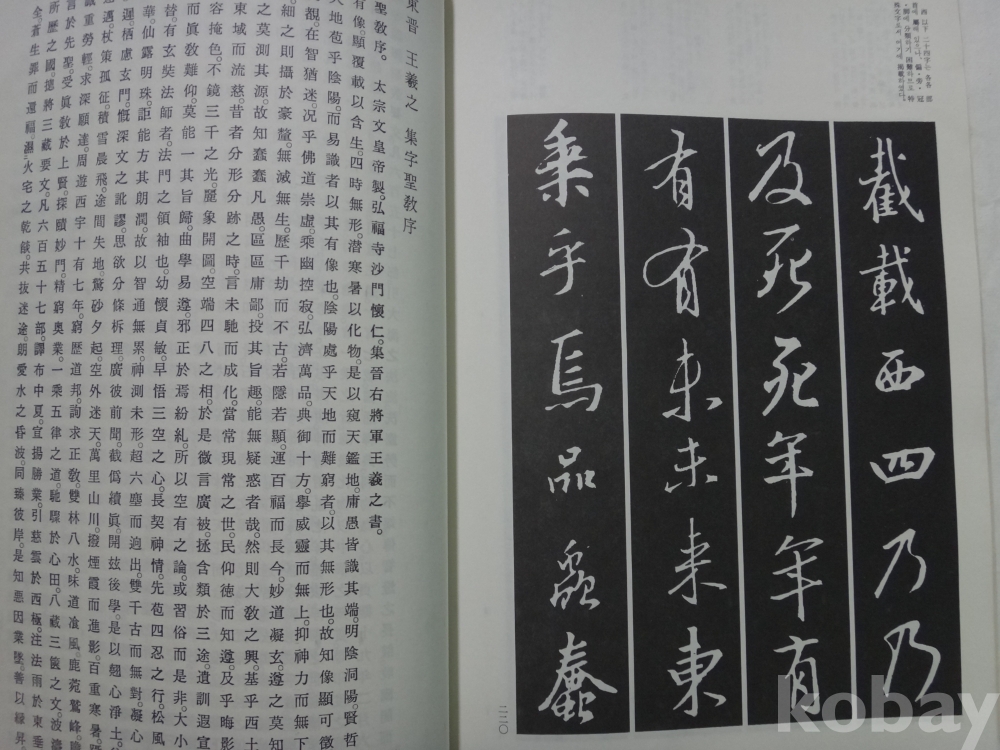 西 以下 二十四字는 各各 部
首에 屬해 있으나、偏·旁·冠
·脚에 分類하기 困難하므로 特
殊文字로서 여기에 揭載하였다。
截載西四乃乃
及死死年年有
有有未未来東
乘乎焉品蟲蠢
二二〇
東晋 王羲之 集字聖敎序
聖敎序。太宗文皇帝製。弘福寺沙門懷仁。集晉右將軍王羲之書。
有像。顯覆載以含生。四時無形。潜寒暑以化物。是以窺天鑑地。庸愚皆識其端。明陰洞陽。賢哲
天地苞乎陰陽。而易識者以其有像也。陰陽處乎天地而難窮者。以其無形也。故知像顯可徵
覩。在智猶迷。況乎佛道崇虛。乘幽控寂。弘濟萬品。典御十方。擧威靈而無上。抑神力而無下
細之則攝於豪釐。無滅無生。歷千劫而不古。若隱若顯。運百福而長今。妙道凝玄。遵之莫知
之莫測其源。故知蠢蠢凡愚。區區庸鄙。投其旨趣。能無疑惑者哉。然則大敎之興。基乎西土
東域而流慈。昔者分形分跡之時。言未馳而成化。當常現常之世。民仰德而知遵。及乎晦影
容掩色。不鏡三千之光。麗象開圖。空端四八之相。於是微言廣被。拯含類於三途。遺訓遐宣
而眞敎難仰。莫能一其旨歸。曲學易遵。邪正於焉紛糺。所以空有之論。或習俗而是非。大小
替。有玄奘法師者。法門之領袖也。幼懷貞敏。早悟三空之心。長契神情。先苞四忍之行。松風
華。仙露明珠。詎能方其朗潤。故以智通無累。神測未形。超六塵而逈出。雙千古而無對。凝
遲。栖慮玄門。慨深文之訛謬。思欲分條柝理。廣彼前聞。截僞續眞。開玆後學。是以翹心淨土
遇。杖策孤征。積雪晨飛。途間失地。驚砂夕起。空外迷天。萬里山川。撥煙霞而進影。百重寒暑。
誠重勞輕。求深願達。周遊西宇十有七年。窮歷道邦。詢求正敎。雙林八水。味道飡風。鹿菀鷲峰。
言於先聖。受眞敎於上賢。探賾妙門。精窮奧業。一乘五律之道。馳驟於心田。八藏三篋之文。波濤
所歷之國。摠將三藏要文。凡六百五十七部。譯布中夏。宣揚勝業。引慈雲於西極。注法雨於東垂
全。蒼生罪而還福。濕火宅之乾燄。共拔迷途。朗愛水之昏波。同臻彼岸。是知惡因業墜。善以緣昇
kobay